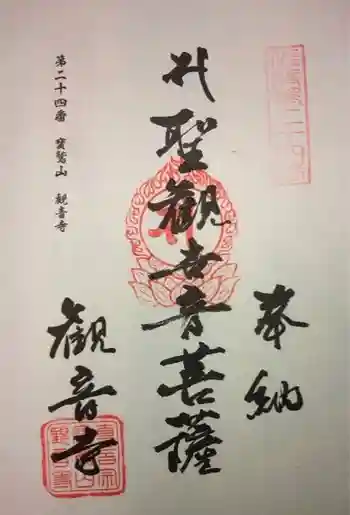 奉納
聖観世音菩薩
観音寺
第二十四番 寳鷲山 観音寺